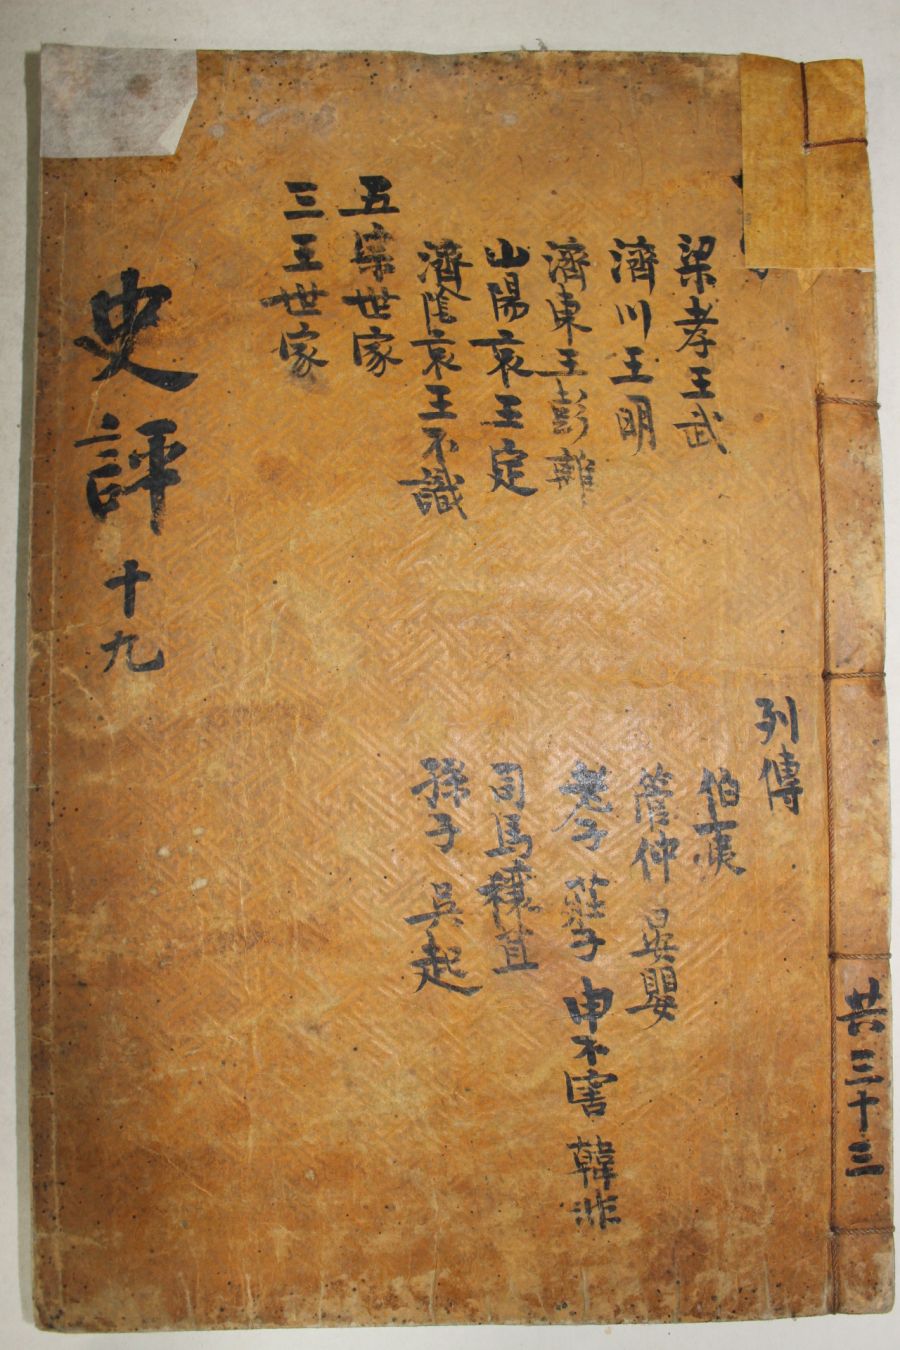 梁孝王武
濟川王明
濟東王彭離
山陽哀王定
濟陰哀王不識
五宗世家
三王世家
史評 十九
列傳
伯夷
管仲 晏嬰
老子 莊子 申不害 韓非
司馬穰苴
孫子 吳起
共三十三